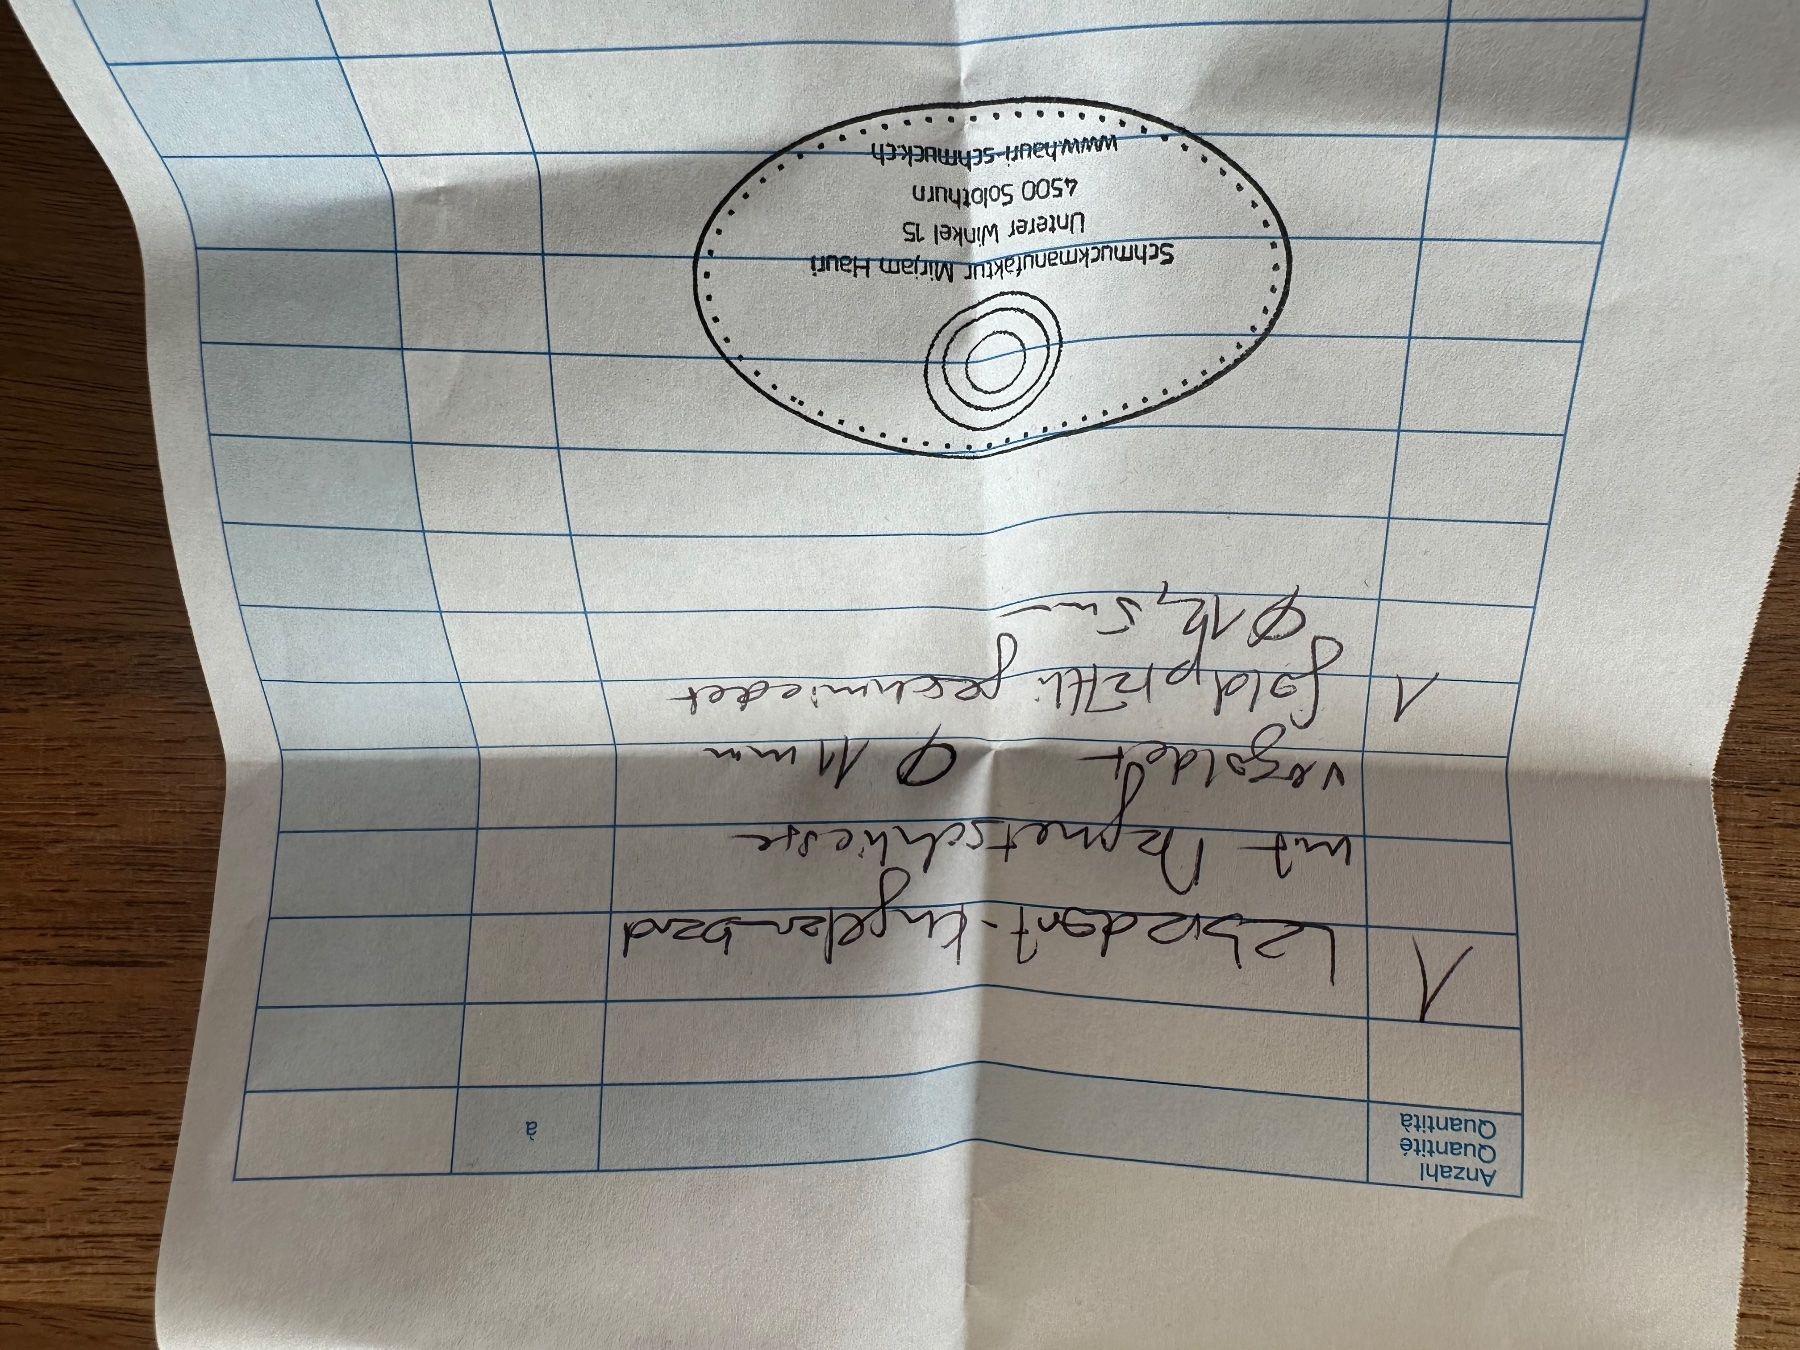 Anzahl
Quantité
Quantità
à
1 Labradorit-Kugelnband
mit Magnetschliesse
vergoldet Ø 11mm
1 Goldplättli geschmiedet
Ø 12,5mm
Schmuckmanufaktur Mirjam Hauri
Unterer Winkel 15
4500 Solothurn
www.hauri-schmuck.ch